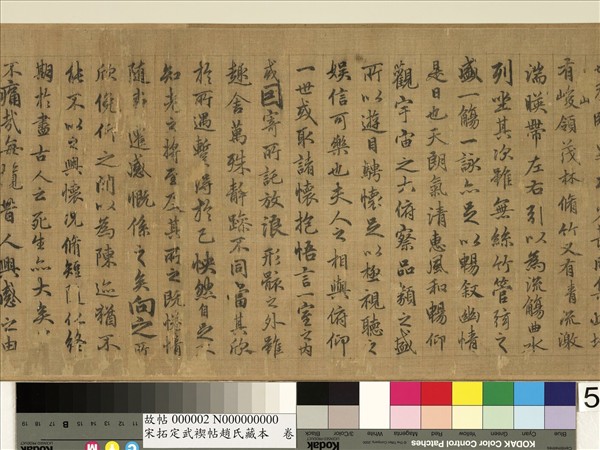 有峻領茂林脩竹又有清流激
湍暎帶左右引以為流觴曲水
列坐其次雖無絲竹管弦之
盛一觴一詠亦足以暢敘幽情
是日也天朗氣清惠風和暢仰
觀宇宙之大俯察品類之盛
所以遊目騁懷足以極視聽之
娛信可樂也夫人之相與俯仰
一世或取諸懷抱悟言一室之內
或因寄所託放浪形骸之外雖
趣舍萬殊靜躁不同當其欣
於所遇蹔得於己怏然自足
知老之將至及其所之既惓情
隨事遷感慨係之矣向之所
欣俛仰之間以為陳迹猶不
能不以之興懷況脩短隨化終
期於盡古人云死生亦大矣
不痛哉每攬昔人興感之由
故帖 000002 N000000000
宋拓定武禊帖趙氏藏本 卷
KODAK Color Control Patches
Blue Cyan Green Yellow Red Magenta White 3/Color Black
Kodak
5
19 18 17 16 15 B 14 13 12 11
M
C